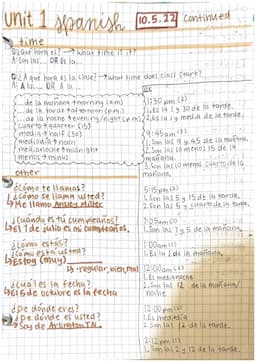 unit 1 spanish 10.5.22 continued
time
¿Qué hora es? → what time is it?
A: Son las... OR Es la...
¿A qué hora es la clase? → what time does class start?
A: A las... OR A la...
... de la mañana → morning (a.m)
... de la tarde → afternoon (p.m)
... de la noche → evening/night (p.m)
cuarto → quarter (15)
media → half (30)
mediodía → noon
medianoche → midnight
menos → minus
other
¿Cómo te llamas?
¿Cómo se llama usted?
↳ Me llamo
¿Cuándo es tu cumpleaños?
↳ El 1 de julio es mi cumpleaños.
¿Cómo estás?
¿Cómo está usted?
↳ Estoy (muy)
↳ regular, bien, mal
¿Cuál es la fecha?
↳ El 5 de octubre es la fecha
¿De dónde eres?
¿De dónde es usted?
↳ Soy de Arlington TN.
1:30 pm (2)
1. Es la 1 y 30 de la tarde.
2. Es la 1 y media de la tarde.
9:45 am (3)
1. Son las 9 y 45 de la mañana.
2. Son las 10 menos 15 de la
mañana.
3. Son las 10 menos cuarto de la
mañana.
5:15 pm (2)
1. Son las 5 y 15 de la tarde.
2. Son las 5 y cuarto de la tarde.
7:05 am (1)
1. Son las 7 y 5 de la mañana.
1:00 am (1)
1. Es la 1 de la mañana.
12:00 am (2)
1. Es medianoche
2. Son las 12 de la mañana/
noche.
12:00 pm (2)
1. Es mediodía
2. Son las 12 de la tarde.
2:12 pm (1)
1. Son las 2 y 12 de la tarde.